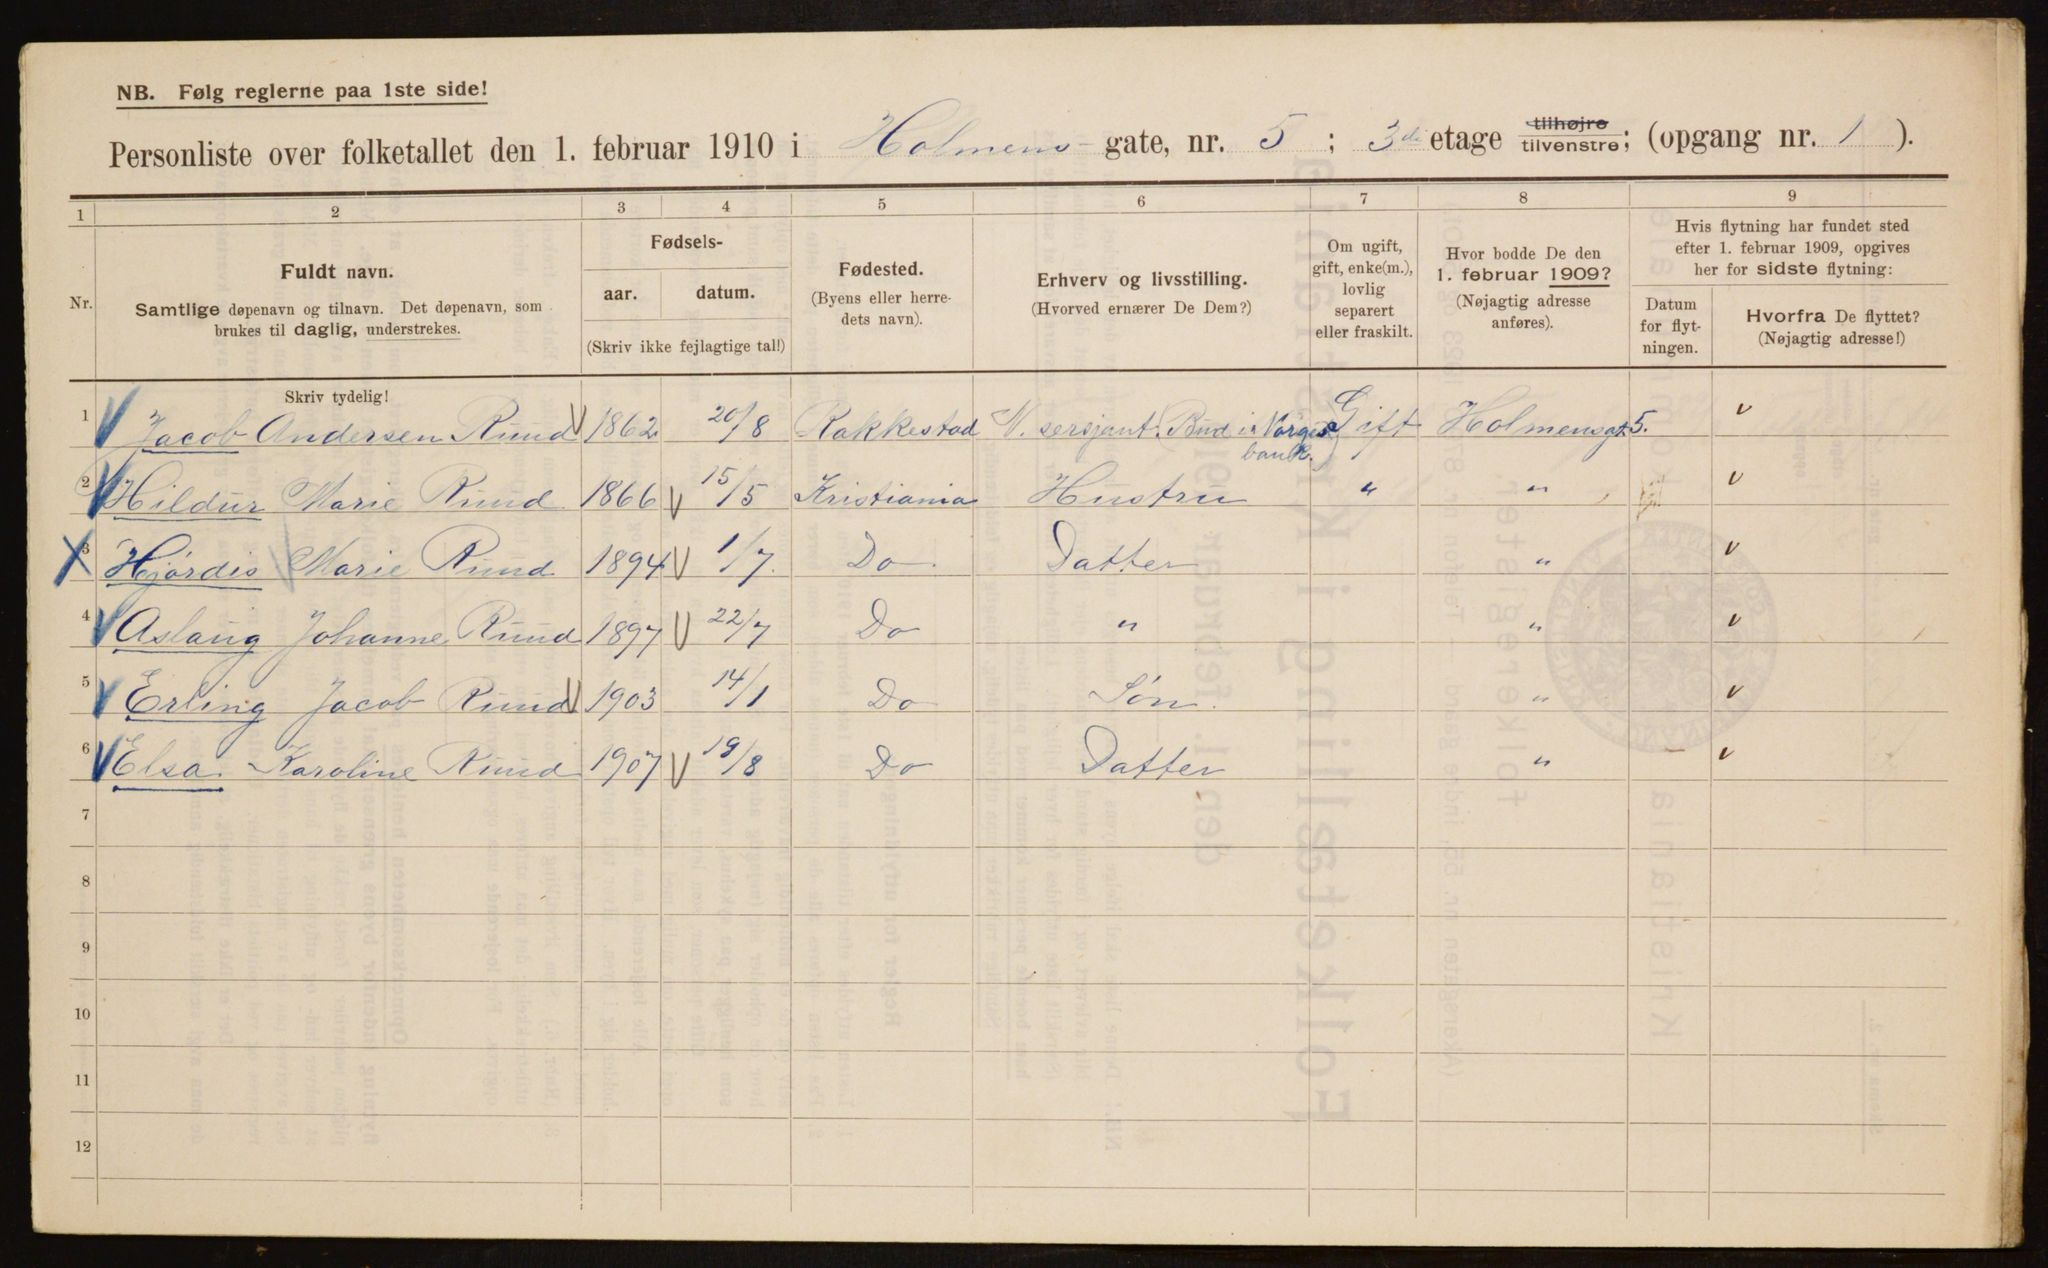 NB. Følg reglerne paa 1ste side!
Personliste over folketallet den 1. februar 1910 i Holmens gate, nr. 5 ; 3di etage tilhøjre tilvenstre; (opgang nr. 1 ).
1 2 3 4 5 6 7 8 9
Nr.
Fuldt navn.
Samtlige døpenavn og tilnavn. Det døpenavn, som
brukes til daglig, understrekes.
Fødsels-
aar. datum.
(Skriv ikke fejlagtige tal!)
Fødested.
(Byens eller herre-
dets navn).
Erhverv og livsstilling.
(Hvorved ernærer De Dem?)
Om ugift,
gift, enke(m.),
lovlig
separert
eller fraskilt.
Hvor bodde De den
1. februar 1909?
(Nøjagtig adresse
anføres).
Hvis flytning har fundet sted
efter 1. februar 1909, opgives
her for sidste flytning:
Datum
for flyt-
ningen.
Hvorfra De flyttet?
(Nøjagtig adresse!)
Skriv tydelig!
1 Jacob Andersen Ruud 1862 20/8 Rakkestad V. sersjant. Bud i Norges bank. Gift Holmensgt 5.
2 Hildur Marie Ruud 1866 15/5 Kristiania Hustru " "
3 Hjørdis Marie Ruud 1894 1/7. Do Datter "
4 Aslaug Johanne Ruud 1897 22/7 Do " "
5 Erling Jacob Ruud 1903 14/1 Do Søn. "
6 Elsa Karoline Ruud 1907 19/8 Do Datter "
7
8
9
10
11
12